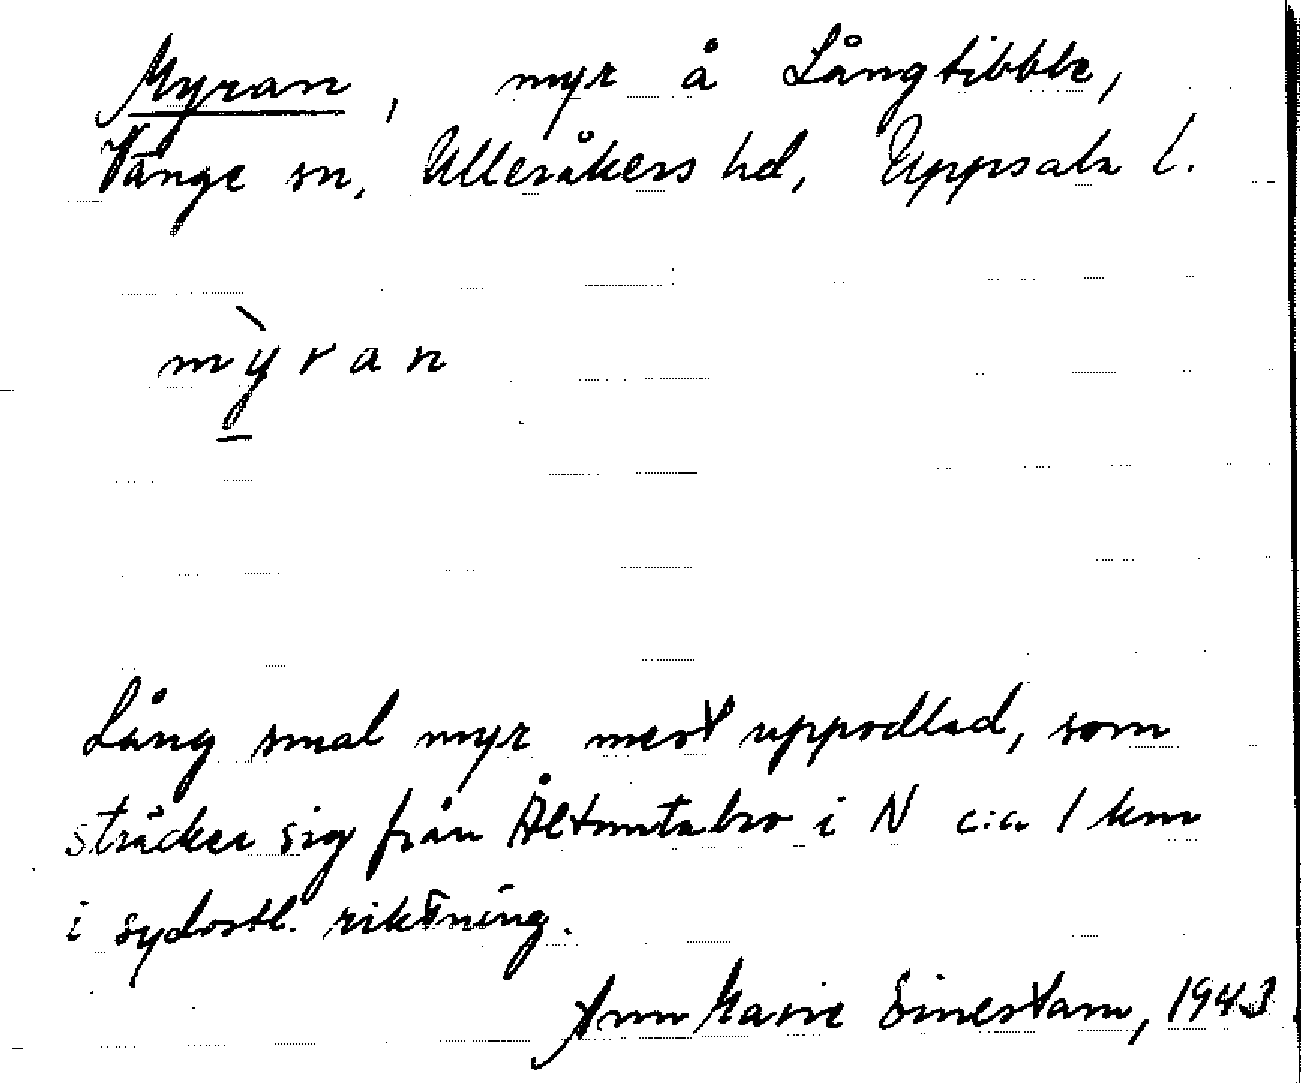 Myran, myr å Långtibble,
Vänge sn, Ulleråkers hd, Uppsala l.
mỳran
Lång smal myr mest uppodlad, som
sträcker sig från Åltomtabro i N c:a 1 km
i sydostl. riktning.
Ann Marie Sinerstam, 1943.